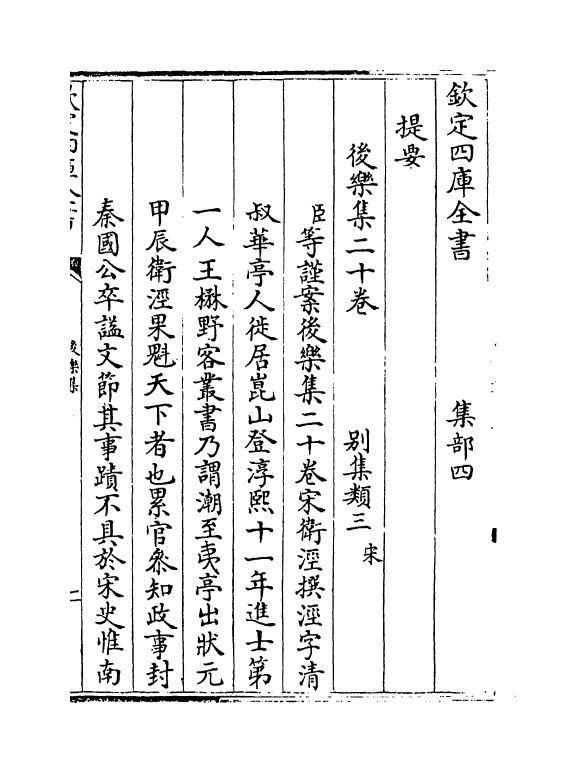 欽定四庫全書　集部四
提要
後樂集二十卷　別集類三 宋
臣等謹案後樂集二十卷宋衛涇撰涇字清
叔華亭人徙居崑山登淳熙十一年進士第
一人王楙野客叢書乃謂潮至夷亭出狀元
甲辰衛涇果魁天下者也累官叅知政事封
秦國公卒諡文節其事蹟不具於宋史惟南
後樂集